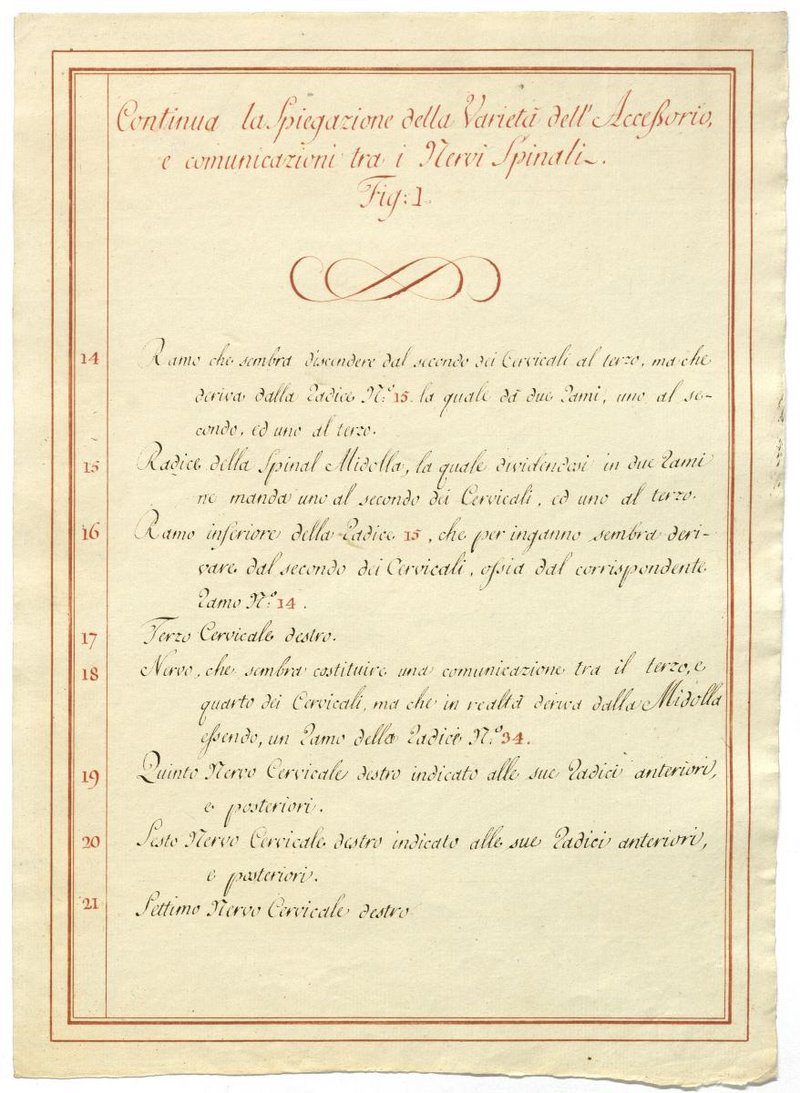 Continua la Spiegazione della Varietà dell' Accessorio,
e comunicazioni tra i Nervi Spinali.
Fig: 1
14 Ramo che sembra discendere dal secondo dei Cervicali al terzo, ma che
deriva dalla Radice N.º 15. la quale dà due Rami, uno al se-
condo, ed uno al terzo.
15 Radice della Spinal Midolla, la quale dividendosi in due Rami
ne manda uno al secondo dei Cervicali, ed uno al terzo.
16 Ramo inferiore della Radice 15, che per inganno sembra deri-
vare dal secondo dei Cervicali, ossia dal corrispondente
Ramo N.º 14.
17 Terzo Cervicale destro.
18 Nervo, che sembra costituire una comunicazione tra il terzo, e
quarto dei Cervicali, ma che in realtà deriva dalla Midolla
essendo, un Ramo della Radice N.º 34.
19 Quinto Nervo Cervicale destro indicato alle sue Radici anteriori,
e posteriori.
20 Sesto Nervo Cervicale destro indicato alle sue Radici anteriori,
e posteriori.
21 Settimo Nervo Cervicale destro